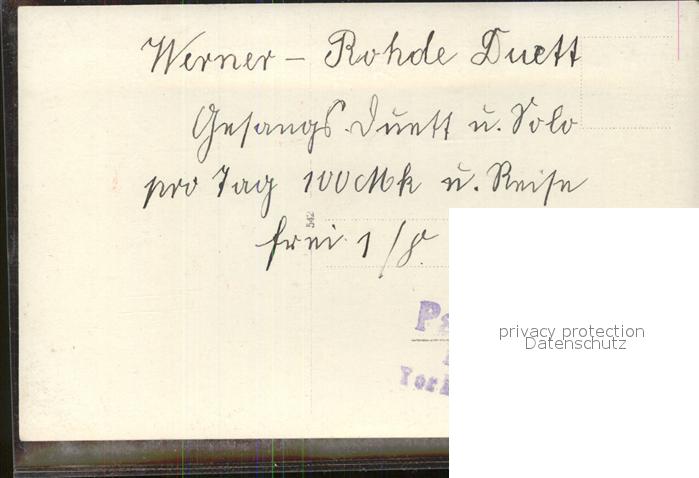 Werner – Rohde Duett
Gesangs Duett u. Solo
pro Tag 100 Mk u. Reise
frei 1/8.
542
privacy protection
Datenschutz